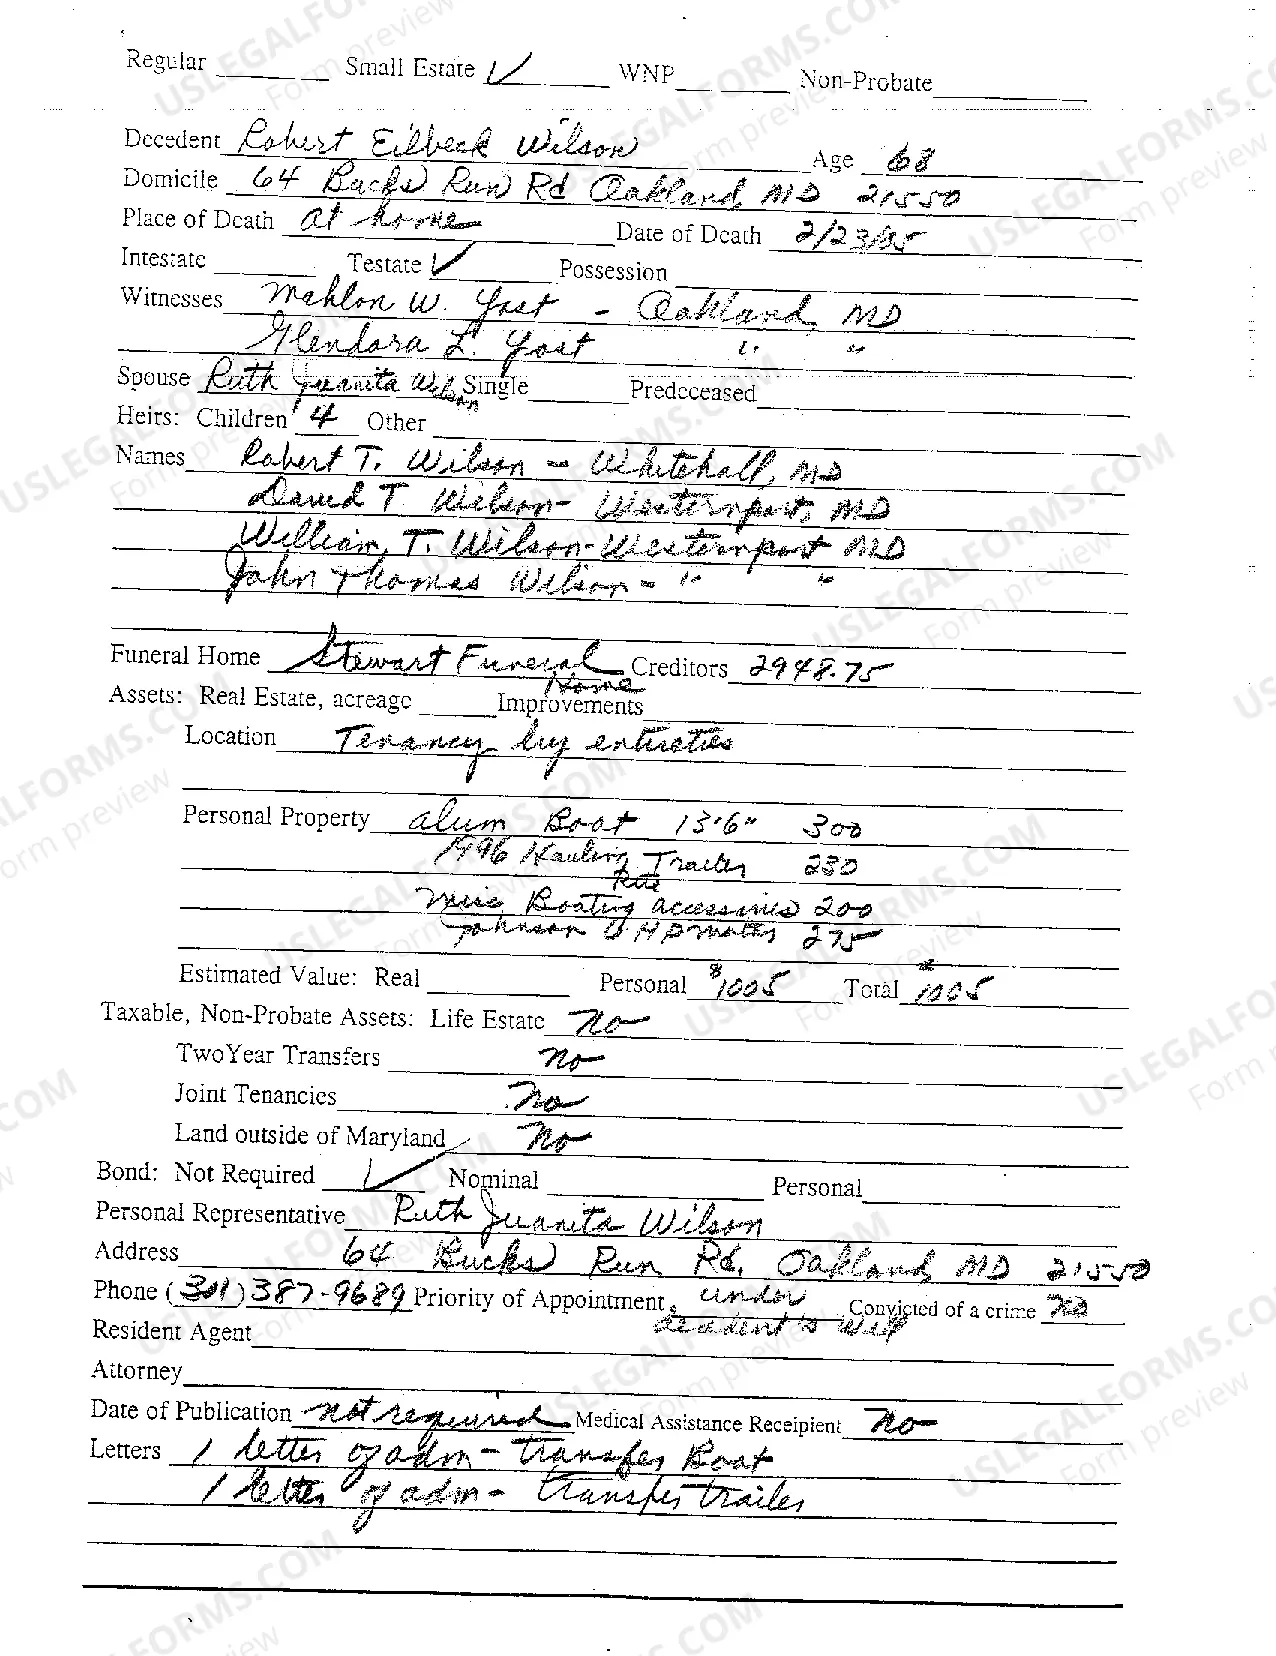 Regular Small Estate ✓ WNP Non-Probate
Decedent Robert Eilbeck Wilson Age 68
Domicile 64 Bucks Run Rd Oakland, MD 21550
Place of Death at home Date of Death 2/23/05
Intestate Testate ✓ Possession
Witnesses Mahlon W. Yost - Oakland, MD
Glendora L. Yost " "
Spouse Ruth Juanita Wilson Single Predeceased
Heirs: Children 4 Other
Names Robert T. Wilson - Whitehall, MD
David T. Wilson - Westernport, MD
William T. Wilson - Westernport MD
John Thomas Wilson - " "
Funeral Home Stewart Funeral Home Creditors 2948.75
Assets: Real Estate, acreage Improvements
Location Tenancy by entireties
Personal Property alum Boat 13'6" 300
1996 Hauling Trailer 230
Misc Boating accessories 200
Johnson HP motor 275
Estimated Value: Real Personal $1005 Total $1005
Taxable, Non-Probate Assets: Life Estate No
Two Year Transfers No
Joint Tenancies No
Land outside of Maryland No
Bond: Not Required ✓ Nominal Personal
Personal Representative Ruth Juanita Wilson
Address 64 Bucks Run Rd. Oakland, MD 21550
Phone (301) 387-9689 Priority of Appointment under decedent's Will Convicted of a crime No
Resident Agent
Attorney
Date of Publication not required Medical Assistance Receipient No
Letters 1 letter of adm - transfer Boat
1 letter of adm - transfer trailer
USLEGALFORMS.COM
Form preview